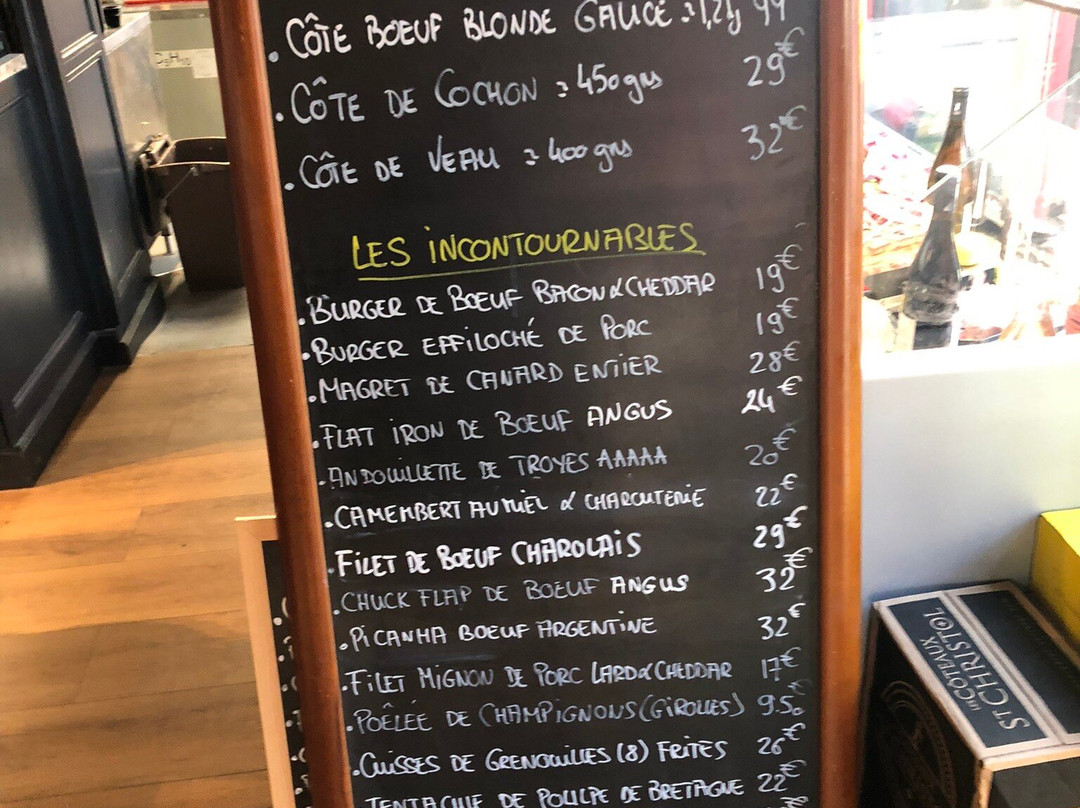 . CÔTE BOEUF BLONDE GALICE 99
. CÔTE DE COCHON ± 450 grs 29€
. CÔTE DE VEAU ± 400 grs 32€
LES INCONTOURNABLES
. BURGER DE BOEUF BACON & CHEDDAR 19€
. BURGER EFFILOCHÉ DE PORC 19€
. MAGRET DE CANARD ENTIER 28€
. FLAT IRON DE BOEUF ANGUS 24€
. ANDOUILLETTE DE TROYES AAAAA 20€
. CAMEMBERT AU MIEL & CHARCUTERIE 22€
. FILET DE BOEUF CHAROLAIS 29€
. CHUCK FLAP DE BOEUF ANGUS 32€
. PICANHA BOEUF ARGENTINE 32€
. FILET MIGNON DE PORC LARD & CHEDDAR 17€
. POÊLÉE DE CHAMPIGNONS (GIROLLES) 9.50
. CUISSES DE GRENOUILLES (8) FRITES 26€
TENTACULE DE POULPE DE BRETAGNE 22€
LES COTEAUX
ST CHRISTOL